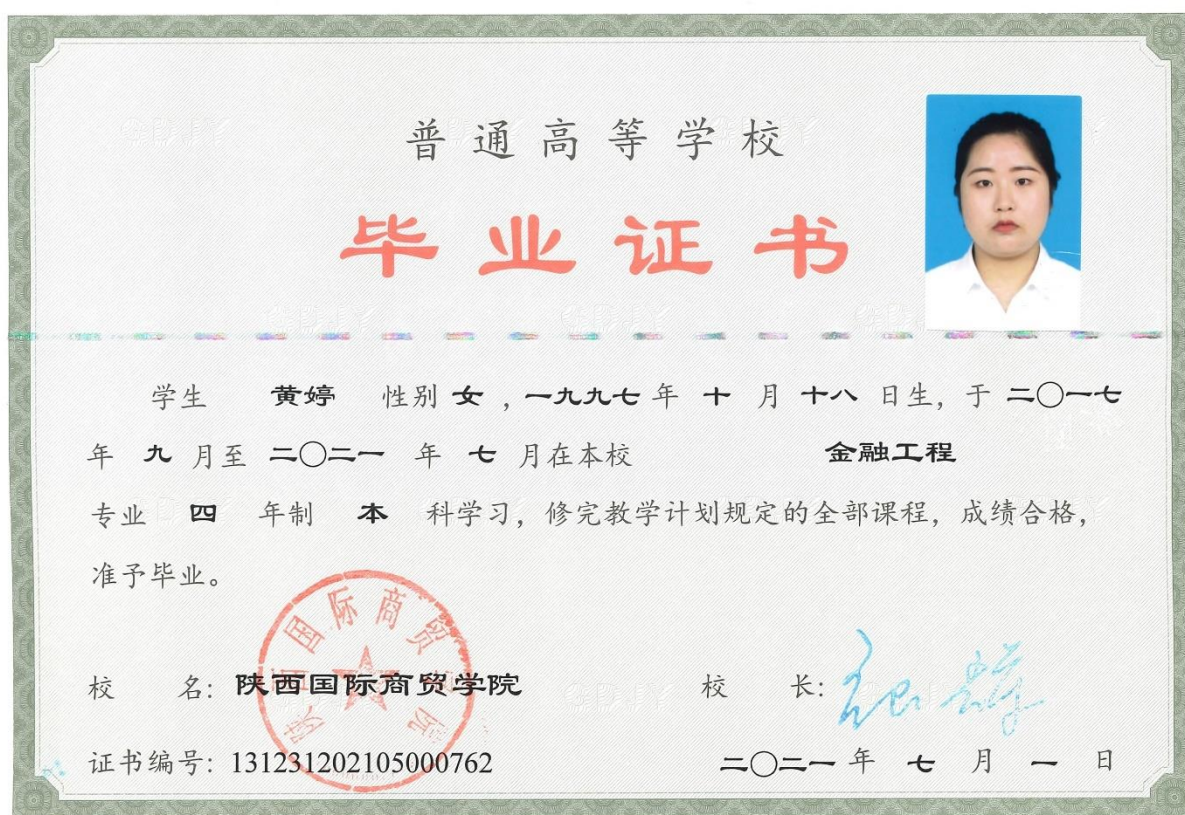 普通高等学校
毕业证书
学生 黄婷 性别 女 ，一九九七 年 十 月 十八 日生，于 二〇一七
年 九 月至 二〇二一 年 七 月在本校 金融工程
专业 四 年制 本 科学习，修完教学计划规定的全部课程，成绩合格，
准予毕业。
陕西国际商贸学院
校 名：陕西国际商贸学院 校 长：
证书编号：131231202105000762 二〇二一 年 七 月 一 日